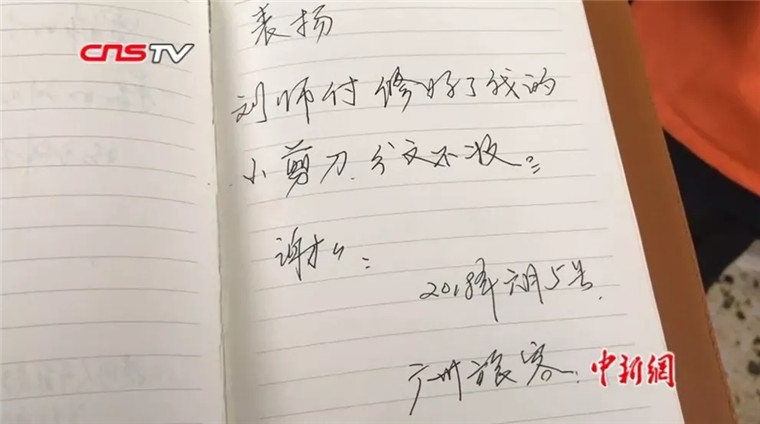 CNSTV
表扬
刘师付修好了我的
小剪刀.分文不收。
谢谢
2018年六月5号.
广州旅客.
中新網